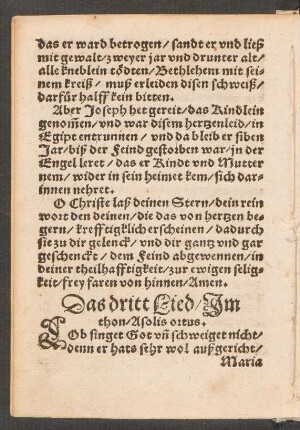 das er ward betrogen / sandt er vnd ließ
mit gewalt / zweyer jar vnd drunter alt /
alle kneblein tödten / Bethlehem mit sei-
nem kreiß / muß erleiden disen schweiß /
darfür halff kein bitten.
Aber Joseph het gereit / das Kindlein
genom̃en / vnd war disem hertzenleid / in
Egipt entrunnen / vnd da bleib er siben
Jar / biß der Feind gestorben war / in der
Engel leret / das er Kindt vnd Mutter
nem / wider in sein heimet kem / sich dar-
innen nehret.
O Christe laß deinen Stern / dein rein
wort den deinen / die das von hertzen be-
gern / krefftigklich erscheinen / dadurch
sie zu dir gelenckt / vnd dir gantz vnd gar
geschenckt / dem Feind abgewennen / in
deiner theilhafftigkeit / zur ewigen selig-
keit / frey faren von hinnen / Amen.
Das dritt Lied / Im
thon / Asolis ortus.
LOb singet Got vñ schweiget nicht /
denn er hats sehr wol außgericht /
Maria